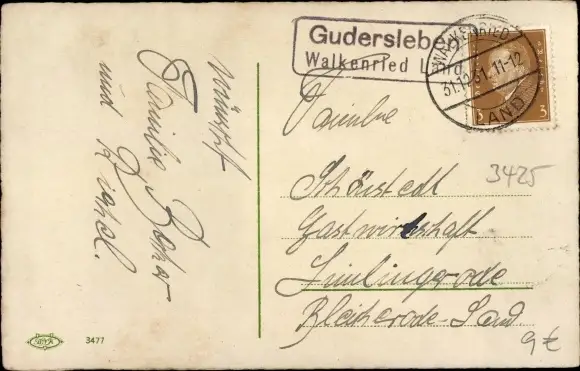 wünscht
Familie
und
Gudersleben
Walkenried Land
WALKENRIED
31.12.31. 11-12
LAND
3 3
Familie
Schönstedt
Gastwirtschaft
Limlingerode
Bleicherode-Land
3425
9 €
3477